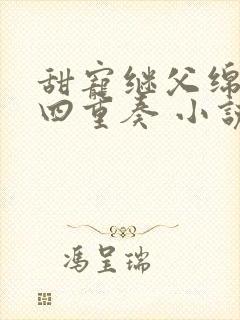 甜寵继父绵
四重奏 小説
馮呈瑞